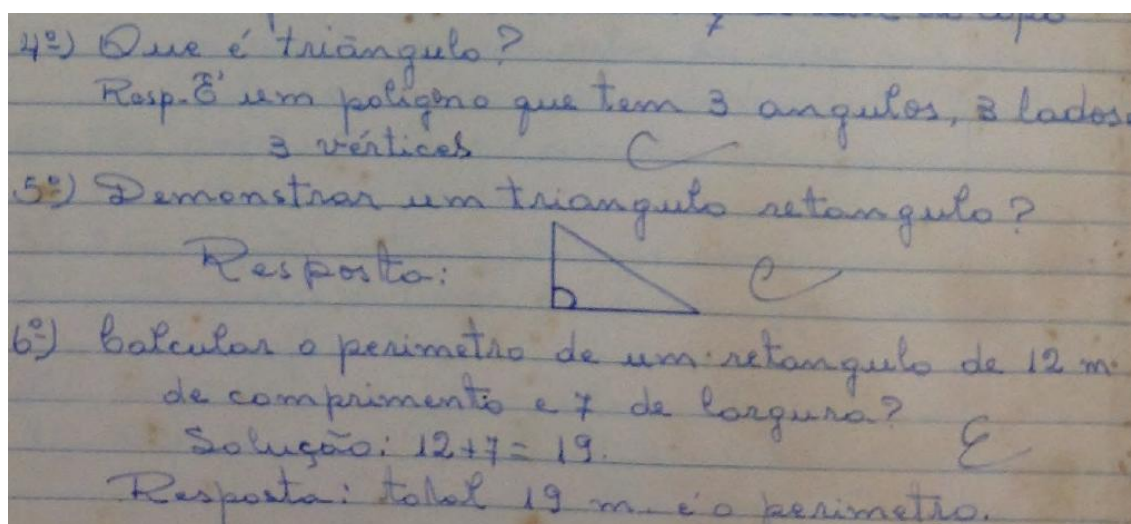 4º) Que é triângulo?
Resp. É um polígono que tem 3 angulos, 3 lados
3 vértices C
5º) Demonstrar um triangulo retangulo?
Resposta: C
6º) Calcular o perimetro de um retangulo de 12 m
de comprimento e 7 de largura?
Solução: 12+7 = 19. E
Resposta: total 19 m é o perimetro.